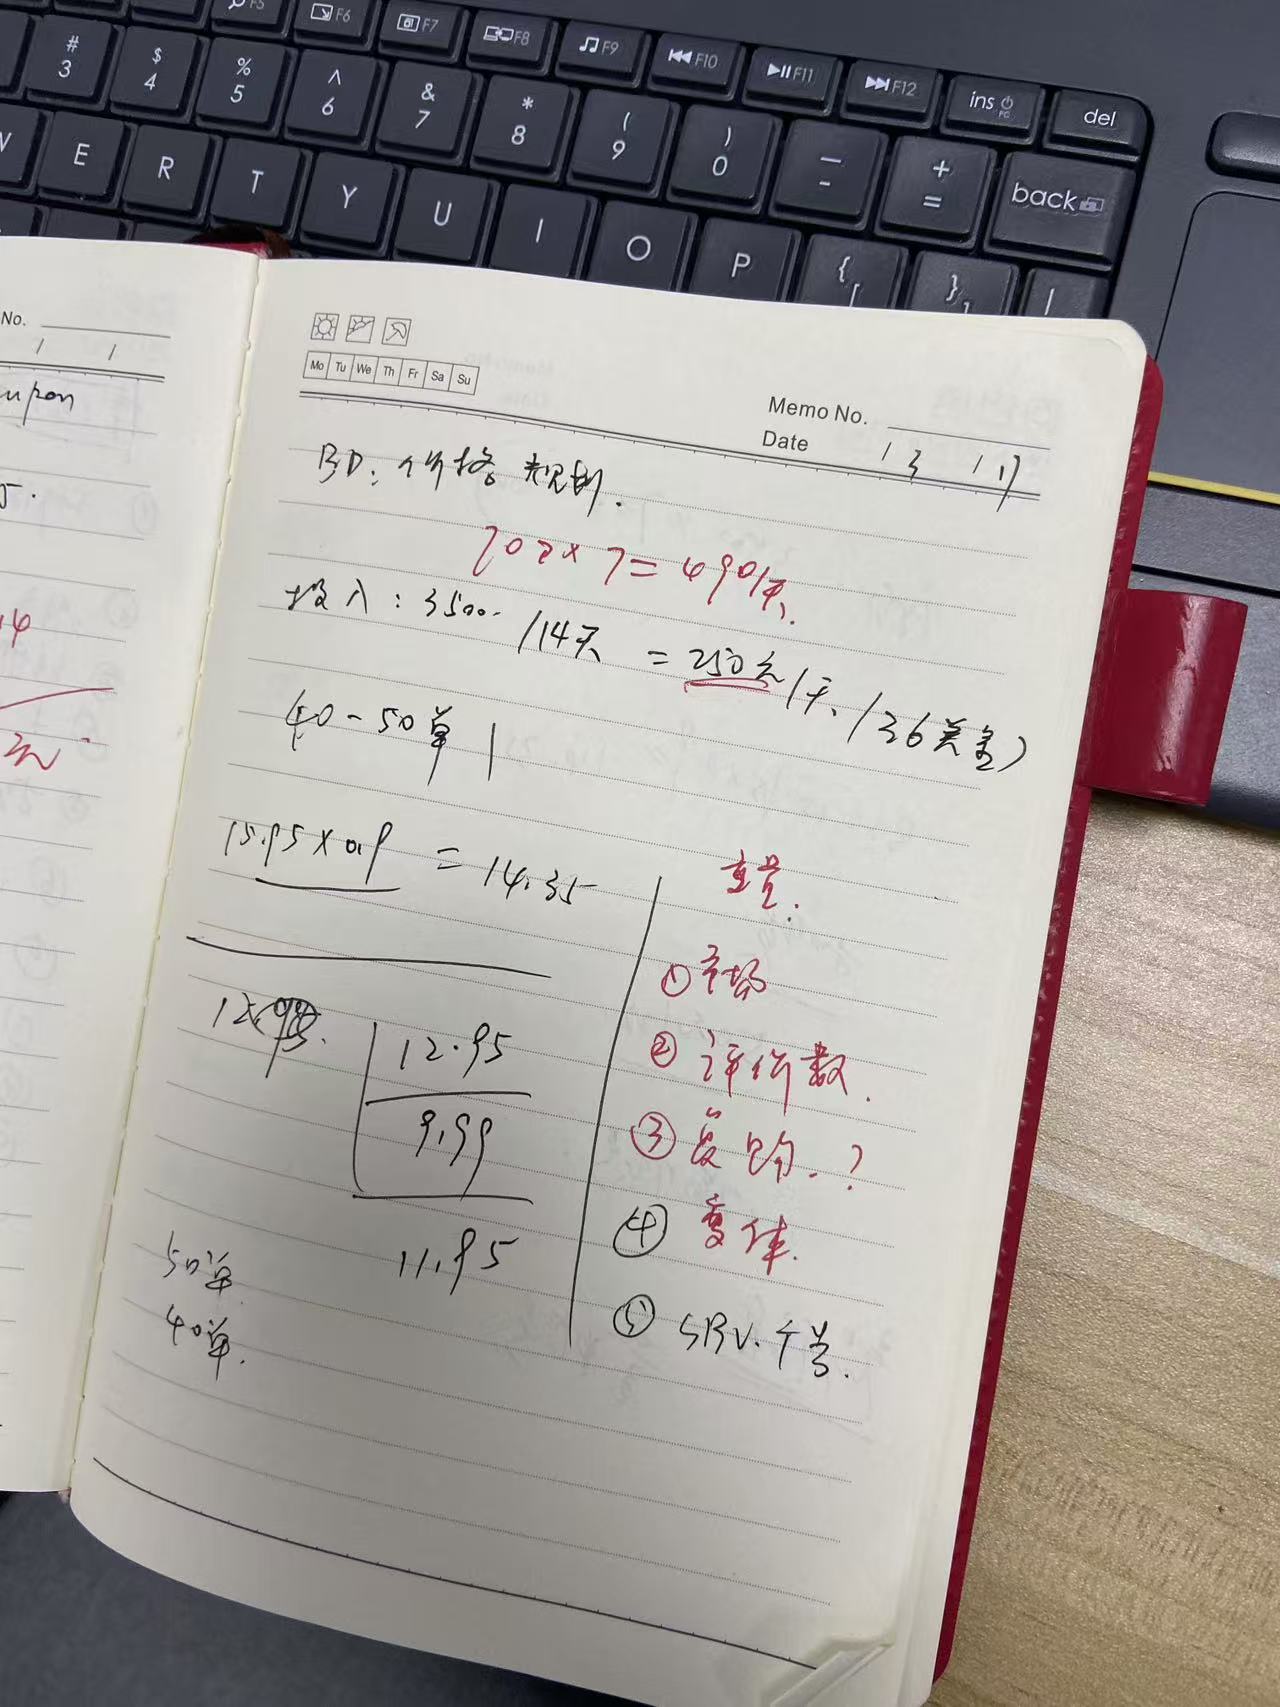 F5 F6 F7 F8 F9 F10 F11 F12 ins del
# 3 $ 4 % 5 ^ 6 & 7 * 8 ( 9 ) 0 _ - + = back
E R T Y U I O P { [ } ] |
No.
/ /
upon
5.
Mo Tu We Th Fr Sa Su
Memo No.
Date / 3 / 17
BD: 价格规划.
70元×7=490/天.
投入: 3500. /14天 = 250元/天. /36美金)
40-50单
15.95×0.9 = 14.35
12.95
9.99
11.95
50单
40单.
重量.
①市场
②评价数.
③复购.?
④变体.
⑤SBV.